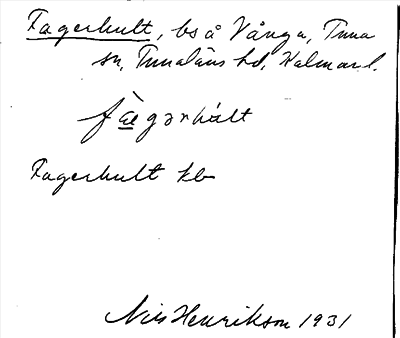 Fagerhult, bs å Vånga, Tuna
sn, Tunaläns hd, Kalmar l.
fàgərhúlt
Fagerhult kb
Nils Henrikson 1931